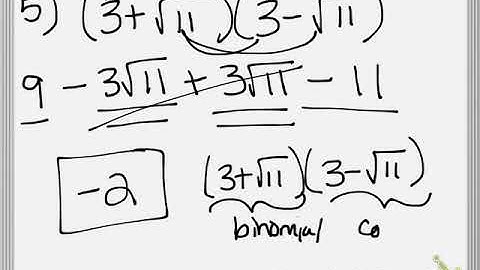 5) (3+√11)(3-√11)
9 - 3√11 + 3√11 - 11
-2
(3+√11)(3-√11)
binomial co